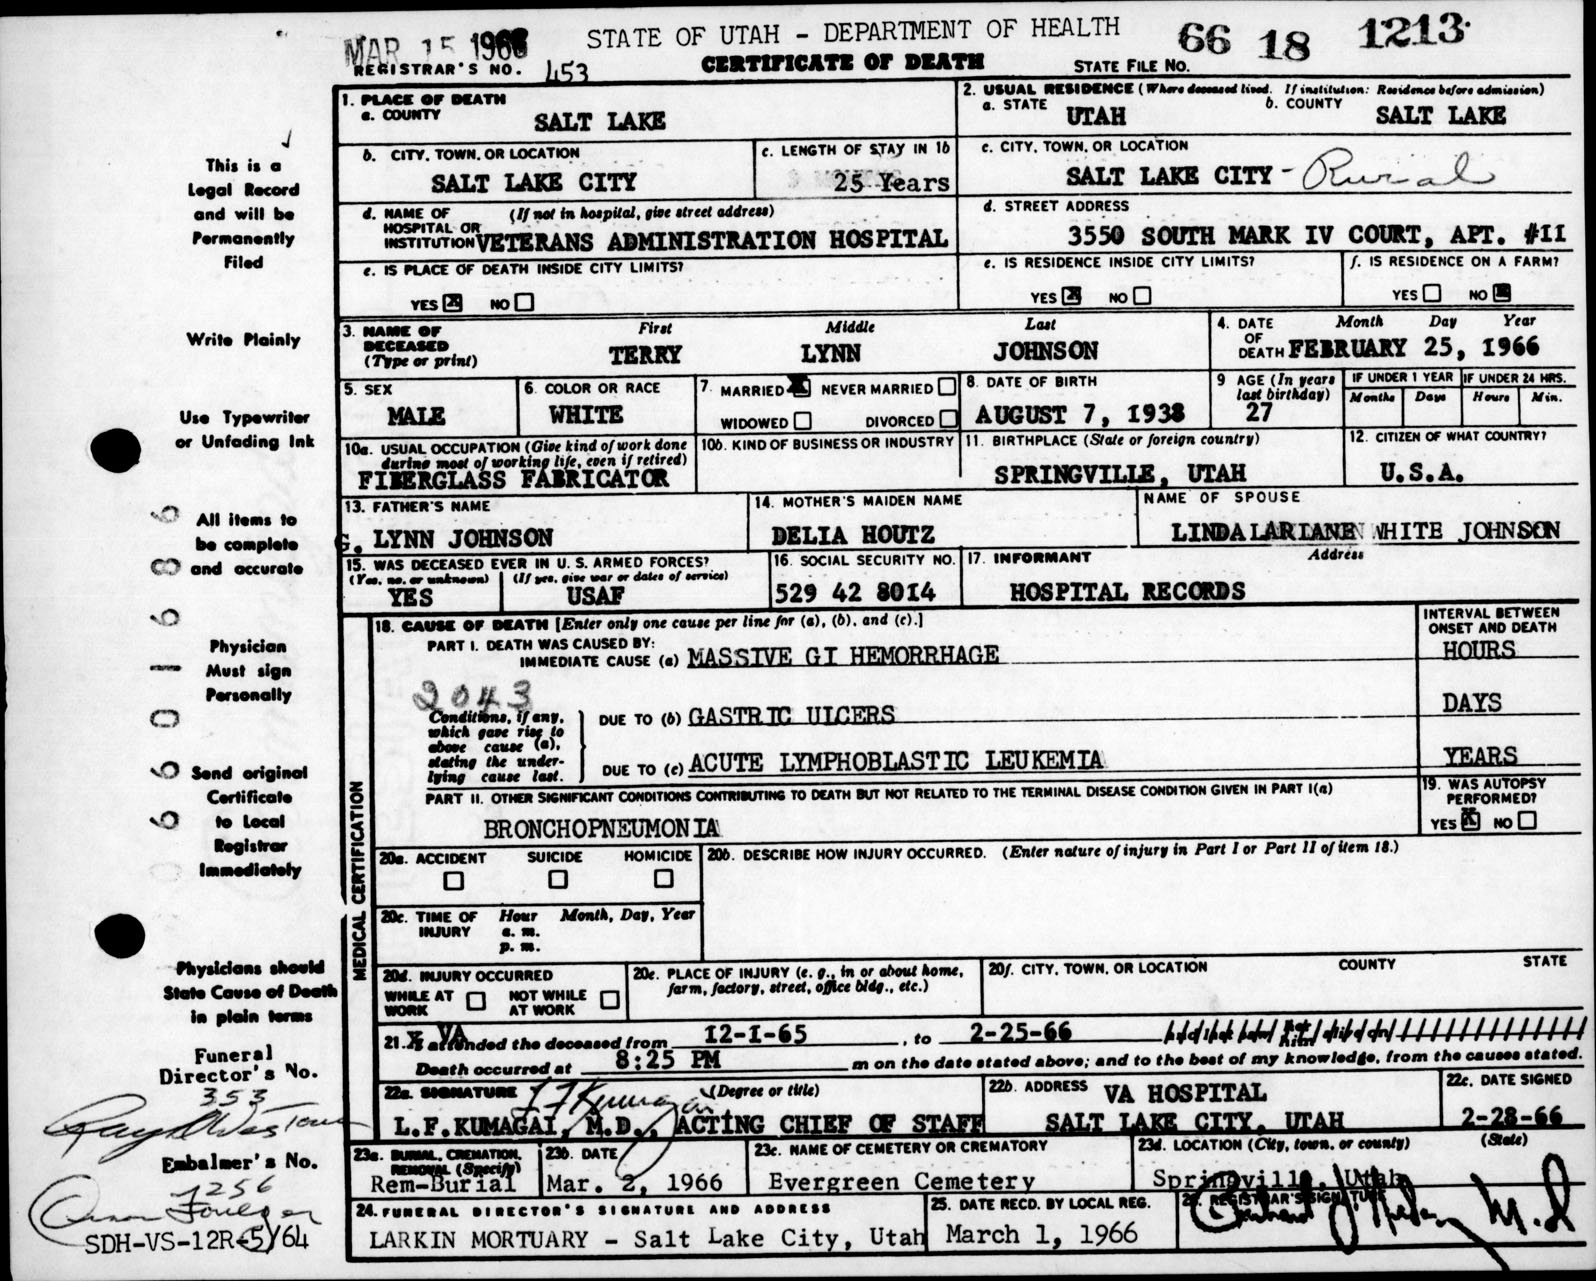 MAR 15 1966 STATE OF UTAH - DEPARTMENT OF HEALTH 66 18 1213
REGISTRAR'S NO. 453 CERTIFICATE OF DEATH STATE FILE NO.
1. PLACE OF DEATH
a. COUNTY
SALT LAKE
2. USUAL RESIDENCE (Where deceased lived. If institution: Residence before admission)
a. STATE UTAH b. COUNTY SALT LAKE
b. CITY, TOWN, OR LOCATION
SALT LAKE CITY
c. LENGTH OF STAY IN 1b
25 Years
c. CITY, TOWN, OR LOCATION
SALT LAKE CITY - Rural
d. NAME OF HOSPITAL OR INSTITUTION (If not in hospital, give street address)
VETERANS ADMINISTRATION HOSPITAL
d. STREET ADDRESS
3550 SOUTH MARK IV COURT, APT. #11
e. IS PLACE OF DEATH INSIDE CITY LIMITS?
YES X NO
e. IS RESIDENCE INSIDE CITY LIMITS?
YES X NO
f. IS RESIDENCE ON A FARM?
YES NO X
3. NAME OF DECEASED (Type or print)
First Middle Last
TERRY LYNN JOHNSON
4. DATE OF DEATH Month Day Year
FEBRUARY 25, 1966
5. SEX
MALE
6. COLOR OR RACE
WHITE
7. MARRIED X NEVER MARRIED
WIDOWED DIVORCED
8. DATE OF BIRTH
AUGUST 7, 1938
9 AGE (In years last birthday)
27
IF UNDER 1 YEAR IF UNDER 24 HRS.
Months Days Hours Min.
10a. USUAL OCCUPATION (Give kind of work done during most of working life, even if retired)
FIBERGLASS FABRICATOR
10b. KIND OF BUSINESS OR INDUSTRY
11. BIRTHPLACE (State or foreign country)
SPRINGVILLE, UTAH
12. CITIZEN OF WHAT COUNTRY?
U.S.A.
13. FATHER'S NAME
G. LYNN JOHNSON
14. MOTHER'S MAIDEN NAME
DELIA HOUTZ
NAME OF SPOUSE
LINDA LARIANE WHITE JOHNSON
15. WAS DECEASED EVER IN U. S. ARMED FORCES?
(Yes, no, or unknown) (If yes, give war or dates of service)
YES USAF
16. SOCIAL SECURITY NO.
529 42 8014
17. INFORMANT Address
HOSPITAL RECORDS
MEDICAL CERTIFICATION
18. CAUSE OF DEATH [Enter only one cause per line for (a), (b), and (c).]
INTERVAL BETWEEN ONSET AND DEATH
PART I. DEATH WAS CAUSED BY:
IMMEDIATE CAUSE (a) MASSIVE GI HEMORRHAGE HOURS
2043
Conditions, if any, which gave rise to above cause (a), stating the underlying cause last.
DUE TO (b) GASTRIC ULCERS DAYS
DUE TO (c) ACUTE LYMPHOBLASTIC LEUKEMIA YEARS
PART II. OTHER SIGNIFICANT CONDITIONS CONTRIBUTING TO DEATH BUT NOT RELATED TO THE TERMINAL DISEASE CONDITION GIVEN IN PART I(a)
BRONCHOPNEUMONIA
19. WAS AUTOPSY PERFORMED?
YES X NO
20a. ACCIDENT SUICIDE HOMICIDE
20b. DESCRIBE HOW INJURY OCCURRED. (Enter nature of injury in Part I or Part II of item 18.)
20c. TIME OF INJURY Hour Month, Day, Year
a. m.
p. m.
20d. INJURY OCCURRED
WHILE AT WORK NOT WHILE AT WORK
20e. PLACE OF INJURY (e. g., in or about home, farm, factory, street, office bldg., etc.)
20f. CITY, TOWN, OR LOCATION COUNTY STATE
21. X VA attended the deceased from 12-1-65, to 2-25-66
Death occurred at 8:25 PM m on the date stated above; and to the best of my knowledge, from the causes stated.
22a. SIGNATURE LF Kumagai (Degree or title)
L.F.KUMAGAI, M.D., ACTING CHIEF OF STAFF
22b. ADDRESS VA HOSPITAL
SALT LAKE CITY, UTAH
22c. DATE SIGNED
2-28-66
23a. BURIAL, CREMATION, REMOVAL (Specify)
Rem-Burial
23b. DATE
Mar. 2, 1966
23c. NAME OF CEMETERY OR CREMATORY
Evergreen Cemetery
23d. LOCATION (City, town, or county) (State)
Springville, Utah
24. FUNERAL DIRECTOR'S SIGNATURE AND ADDRESS
LARKIN MORTUARY - Salt Lake City, Utah
25. DATE RECD. BY LOCAL REG.
March 1, 1966
26. REGISTRAR'S SIGNATURE
M.D
This is a
Legal Record
and will be
Permanently
Filed
Write Plainly
Use Typewriter
or Unfading Ink
All items to
be complete
and accurate
Physician
Must sign
Personally
Send original
Certificate
to Local
Registrar
Immediately
Physicians should
State Cause of Death
in plain terms
Funeral
Director's No.
353
Embalmer's No.
1256
SDH-VS-12R-5/64